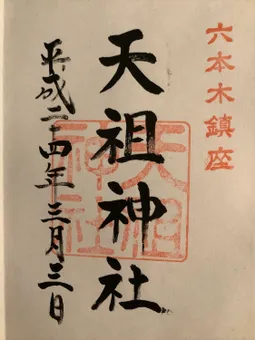 六本木鎮座
天祖神社
平成二十四年三月三日
天祖神社